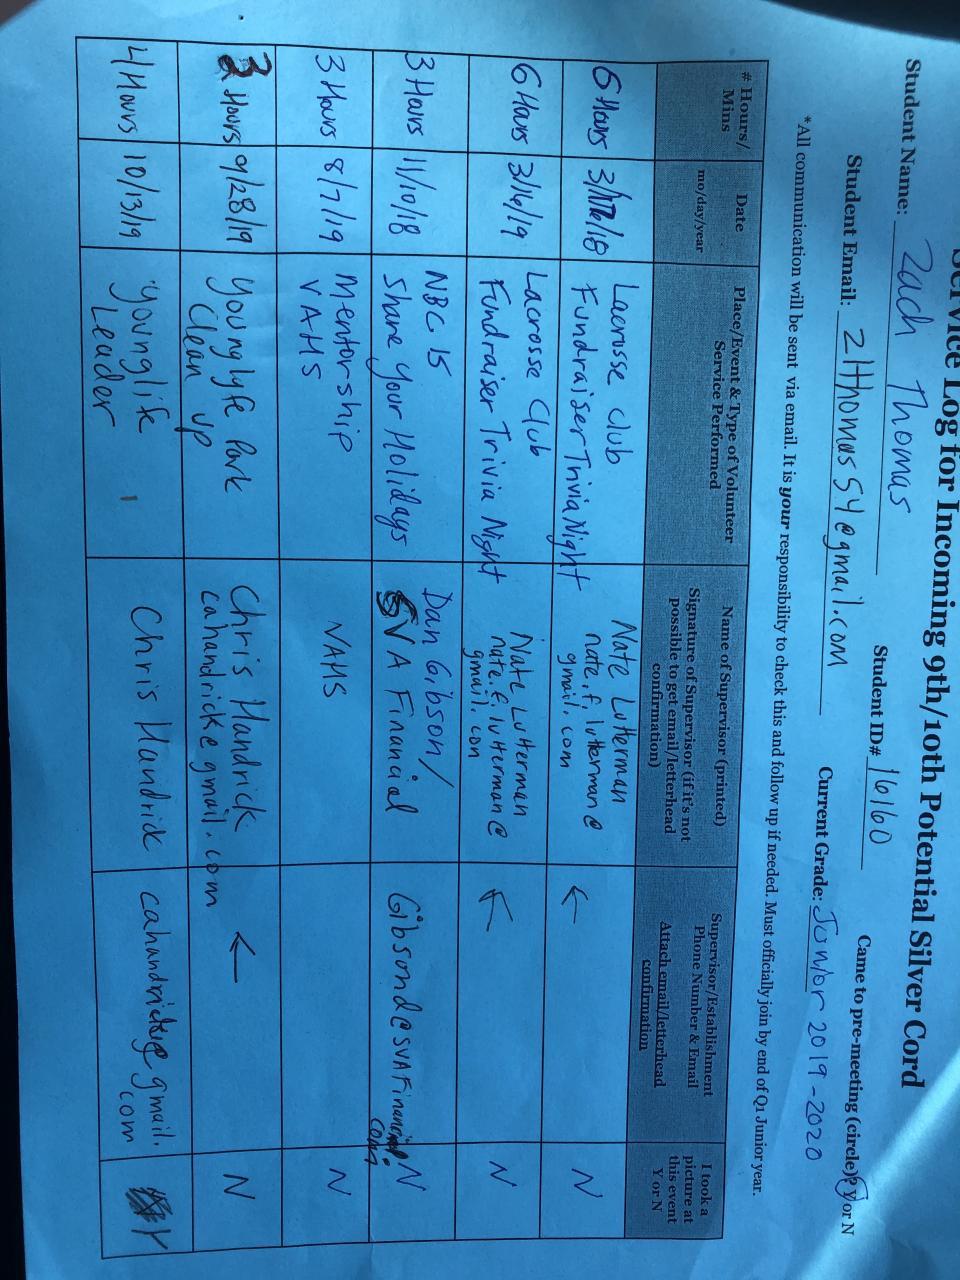 Service Log for Incoming 9th/10th Potential Silver Cord
Student Name: Zach Thomas Student ID# 16160 Came to pre-meeting (circle)? Y or N
Student Email: 21thomas54@gmail.com Current Grade: Junior 2019-2020
*All communication will be sent via email. It is your responsibility to check this and follow up if needed. Must officially join by end of Q1 Junior year.
# Hours/
Mins
Date
mo/day/year
Place/Event & Type of Volunteer
Service Performed
Name of Supervisor (printed)
Signature of Supervisor (if it's not
possible to get email/letterhead
confirmation)
Supervisor/Establishment
Phone Number & Email
Attach email/letterhead
confirmation
I took a
picture at
this event
Y or N
Hours
Lacrosse club
Fundraiser Trivia Night
Nate Lutterman
nate.f.lutterman@
gmail.com
←
N
6 Hours
3/16/19
Lacrosse Club
Fundraiser Trivia Night
Nate Lutterman
nate.f.lutterman@
gmail.com
←
N
3 Hours
11/10/18
NBC 15
Share your Holidays
Dan Gibson/
SVA Financial
Gibsond@SVAFinancial.
com
N
3 Hours
8/7/19
mentorship
VAHS
VAHS
N
3 Hours
9/28/19
Younglyfe Park
Clean up
Chris Handrick
cahandrick@gmail.com
←
N
4 Hours
10/13/19
younglife
Leader
Chris Handrick
cahandrick@gmail.
com
Y